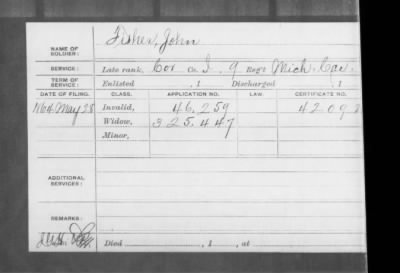 NAME OF SOLDIER: Fisher, John
SERVICE: Late rank, Cor Co. I, 9 Reg't Mich. Cav.
TERM OF SERVICE: Enlisted , 1 Discharged , 1
DATE OF FILING. CLASS. APPLICATION NO. LAW. CERTIFICATE NO.
1864 May 28 Invalid, 46,259 42 098
Widow, 325,447
Minor,
ADDITIONAL SERVICES:
REMARKS:
Died , 1 , at